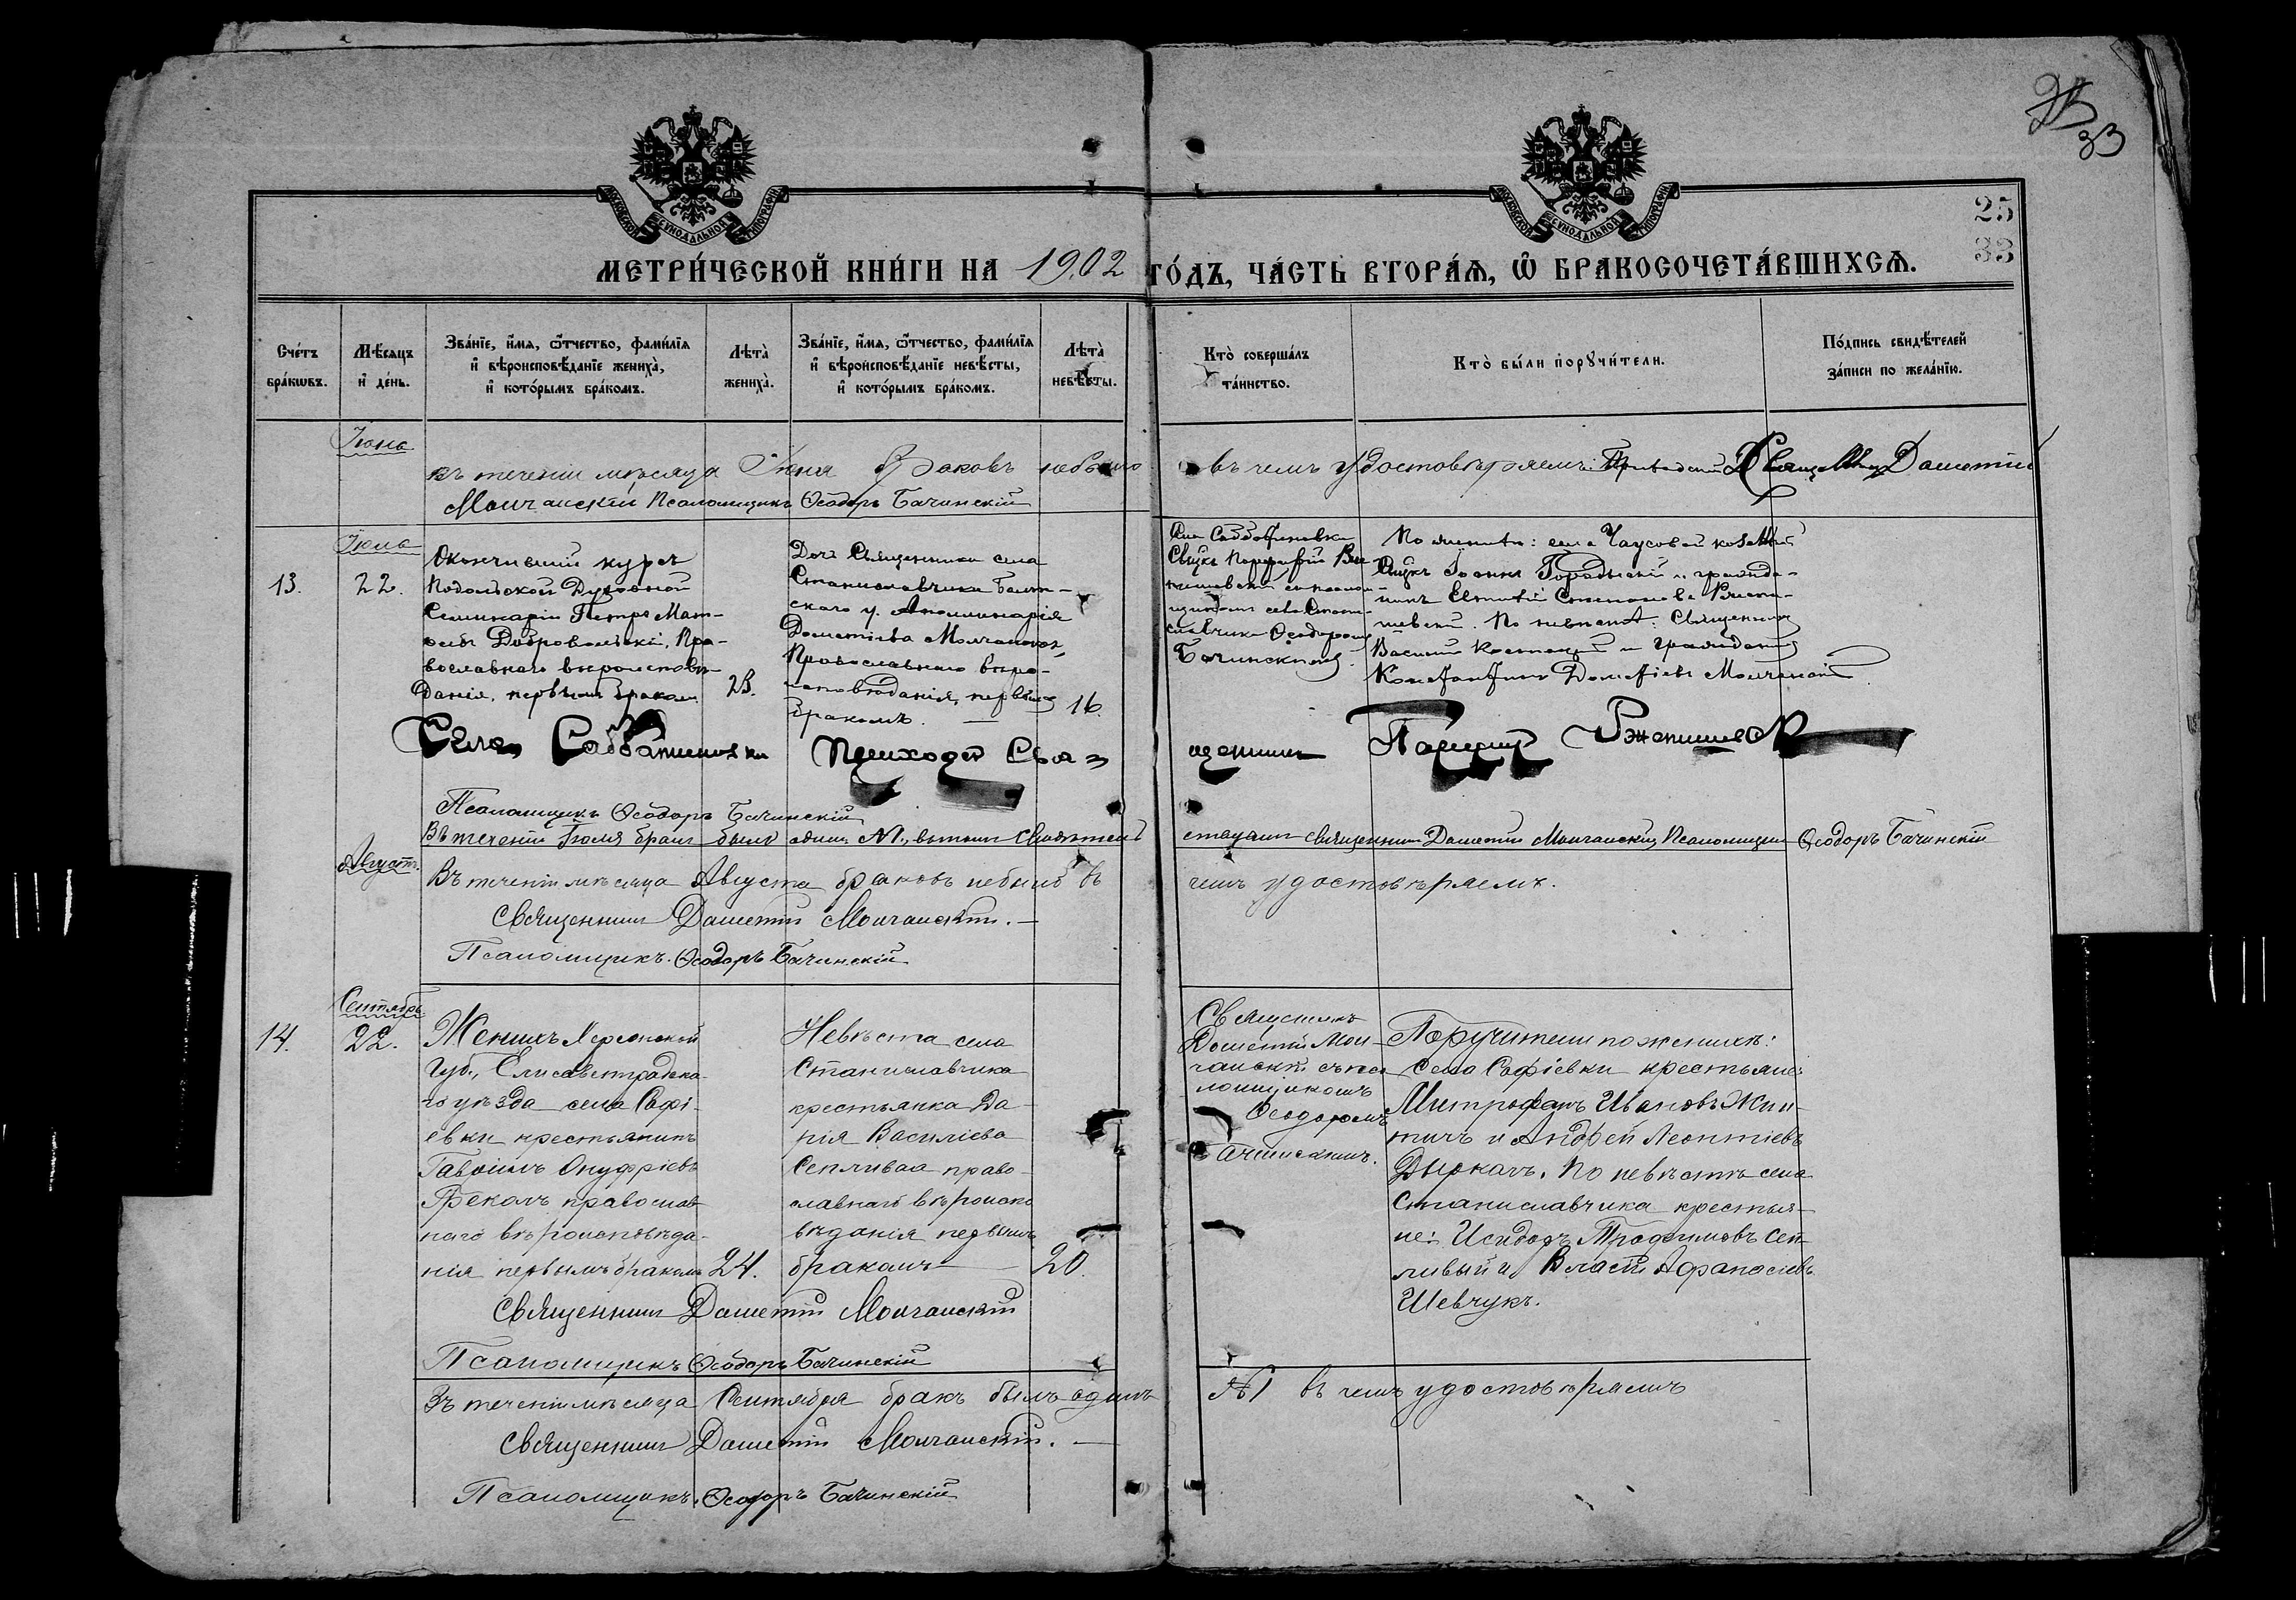 33
25
33
МЕТРИ́ЧЕСКОЙ КНИ́ГИ НА 1902 ГО́ДЪ, ЧА́СТЬ ВТОРА́Я, Ѡ БРАКОСОЧЕТА́ВШИХСѦ.
Сче́тъ бра́кѡвъ.
Мѣ́сяцъ и де́нь.
Зва́нїе, и́мя, ѻ́тчество, фами́лїя и вѣроисповѣ́данїе жениха̀, и кото́рымъ бра́комъ.
Лѣта̀ жениха̀.
Зва́нїе, и́мя, ѻ́тчество, фами́лїя и вѣроисповѣ́данїе невѣ́сты, и кото́рымъ бра́комъ.
Лѣта̀ невѣ́сты.
Кто̀ соверша́лъ та́инство.
Кто̀ бы́ли порꙋчи́тели.
По́дпись свидѣ́телей за́писи по жела́нїю.
Іюнь
въ теченіи мѣсяца Іюня браковъ небыло въ чемъ удостовѣряемъ: Дометій
Молчанскій Псаломщикъ Ѳеодоръ Бачинскій
Іюль
13. 22.
Окончившій курсъ
Подольской Духовной
Семинаріи Петръ Мат-
Добровольскій, Пра-
вославнаго вѣроисповѣ-
данія, первымъ бракомъ 23.
Дочь Священника села
Станиславчика Балт-
скаго у. Апполинарія
Дометіева Молчанская,
Православнаго вѣро-
исповѣданія, первымъ
бракомъ. — 16.
Ѳеодоромъ
Бачинскимъ.
Священникъ
Василій и гражданинъ
Константинъ Дометіевъ Молчанскій
Села Саббатиновки Приходскій Свя=
щенникъ
Псаломщикъ Ѳеодоръ Бачинскій
Въ теченіи Іюля бракъ былъ одинъ №1, въ чемъ свидѣтель
ствуемъ Священникъ Дометій Молчанскій Псаломщикъ Ѳеодоръ Бачинскій
Августъ.
Въ теченіи мѣсяца Августа браковъ небыло въ чемъ удостовѣряемъ.
Священникъ Дометій Молчанскій. —
Псаломщикъ. Ѳеодоръ Бачинскій
Сентябрь
14. 22.
Женихъ Херсонской
Губ., Елисаветградска-
го уѣзда села Софі-
евки крестьянинъ
Гавріилъ Онуфріевъ
православ-
наго вѣроисповѣда-
нія первымъ бракомъ 24.
Невѣста села
Станиславчика
крестьянка Да-
рія Василіева
Сепливая право-
славнаго вѣроиспо
вѣданія первымъ
бракомъ — 20.
Священникъ
Дометій Мол-
чанскій съ пса
ломщикомъ
Ѳеодоромъ
Бачинскимъ.
Поручители по женихѣ:
Села Софіевки крестьяне:
Митрофанъ Ивановъ
и Андрей Леонтіевъ
Дыркачъ. По невѣстѣ села
Станиславчика крестья-
не: Исидоръ Трофимовъ Сеп-
ливый и Власій Афанасіевъ
Шевчукъ.
Священникъ Дометій Молчанскій
Псаломщикъ Ѳеодоръ Бачинскій
Въ теченіи мѣсяца Сентября бракъ былъ одинъ №1 въ чемъ удостовѣряемъ
Священникъ Дометій Молчанскій. —
Псаломщикъ. Ѳеодоръ Бачинскій